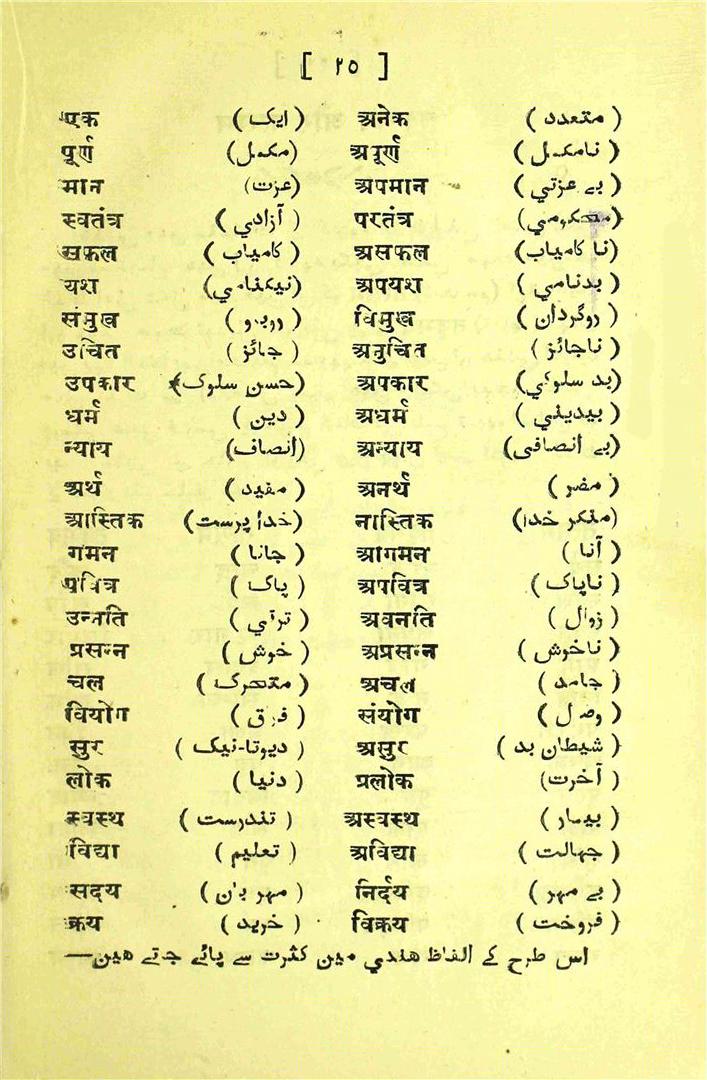 [ ۲۵ ]
एक ( ایک ) अनेक ( متعدد )
पूर्ण (مکمل) अपूर्ण ( نامکمل )
मान (عزت) अपमान ( بے عزتي )
स्वतंत्र ( آزادي ) परतंत्र (محکومي)
सफल ( کامیاب ) असफल (نا کامیاب)
यश (نیکنامي) अपयश ( بدنامي )
संमुख ( روبرو ) विमुख ( روگردان )
उचित ( جائز ) अनुचित ( ناجائز )
उपकार (حسن سلوک) अपकार (بد سلوکي)
धर्म ( دین ) अधर्म ( بیدیني )
न्याय (انصاف) अन्याय (بے انصافی)
अर्थ ( مفید ) अनर्थ ( مضر )
आस्तिक (خدا پرست) नास्तिक (منکر خدا)
गमन ( جانا ) आगमन ( آنا )
पवित्र ( پاک ) अपवित्र ( ناپاک )
उन्नति ( ترقي ) अवनति ( زوال )
प्रसन्न ( خوش ) अप्रसन्न ( ناخوش )
चल ( متحرک ) अचल ( جامد )
वियोग ( فرق ) संयोग ( وصل )
सुर ( دیوتا-نیک ) असुर ( شیطان بد )
लोक ( دنیا ) प्रलोक (آخرت )
स्वस्थ ( تندرست ) अस्वस्थ ( بیمار )
विद्या ( تعلیم ) अविद्या ( جہالت )
सदय ( مہربان ) निर्दय ( بے مہر )
क्रय ( خرید ) विक्रय ( فروخت )
اس طرح کے الفاظ هندي میں کثرت سے پائے جتے هین—